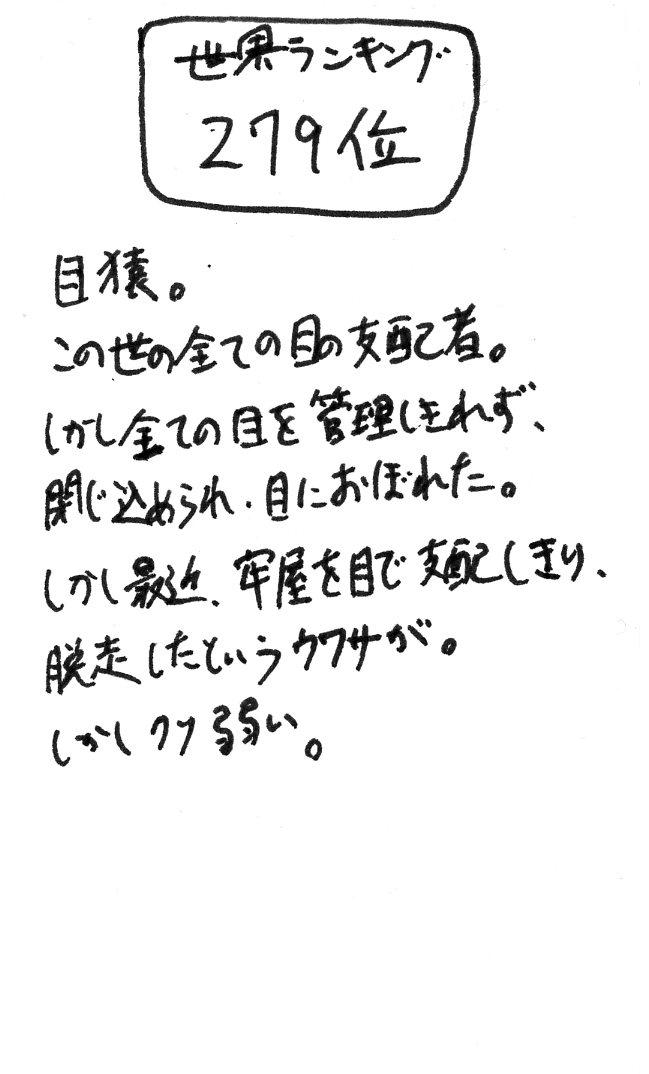 世界ランキング
279位
目猿。
この世の全ての目の支配者。
しかし全ての目を管理しきれず、
閉じ込められ、目におぼれた。
しかし最近、牢屋を目で支配しきり、
脱走したというウワサが。
しかしクソ弱い。